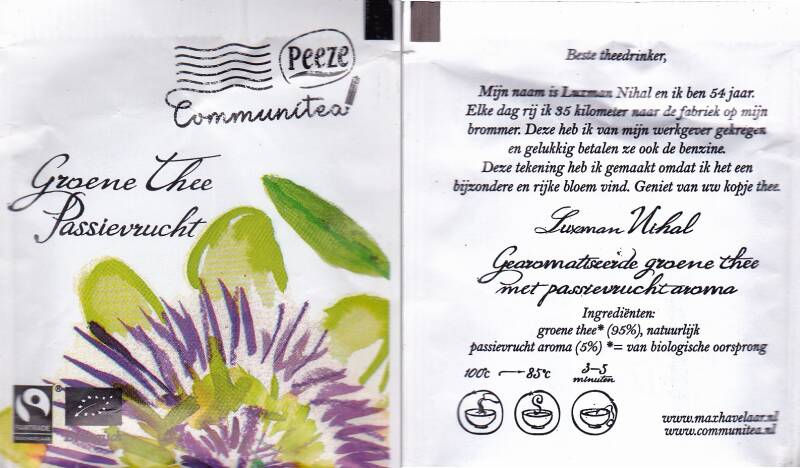 Peeze
Communitea
Groene thee
Passievrucht
FAIRTRADE
Beste theedrinker,
Mijn naam is Luxman Nihal en ik ben 54 jaar.
Elke dag rij ik 35 kilometer naar de fabriek op mijn
brommer. Deze heb ik van mijn werkgever gekregen
en gelukkig betalen ze ook de benzine.
Deze tekening heb ik gemaakt omdat ik het een
bijzondere en rijke bloem vind. Geniet van uw kopje thee.
Luxman Nihal
Gearomatiseerde groene thee
met passievrucht aroma
Ingrediënten:
groene thee* (95%), natuurlijk
passievrucht aroma (5%) *= van biologische oorsprong
100°c 85°c 3-5
minuten
www.maxhavelaar.nl
www.communitea.nl